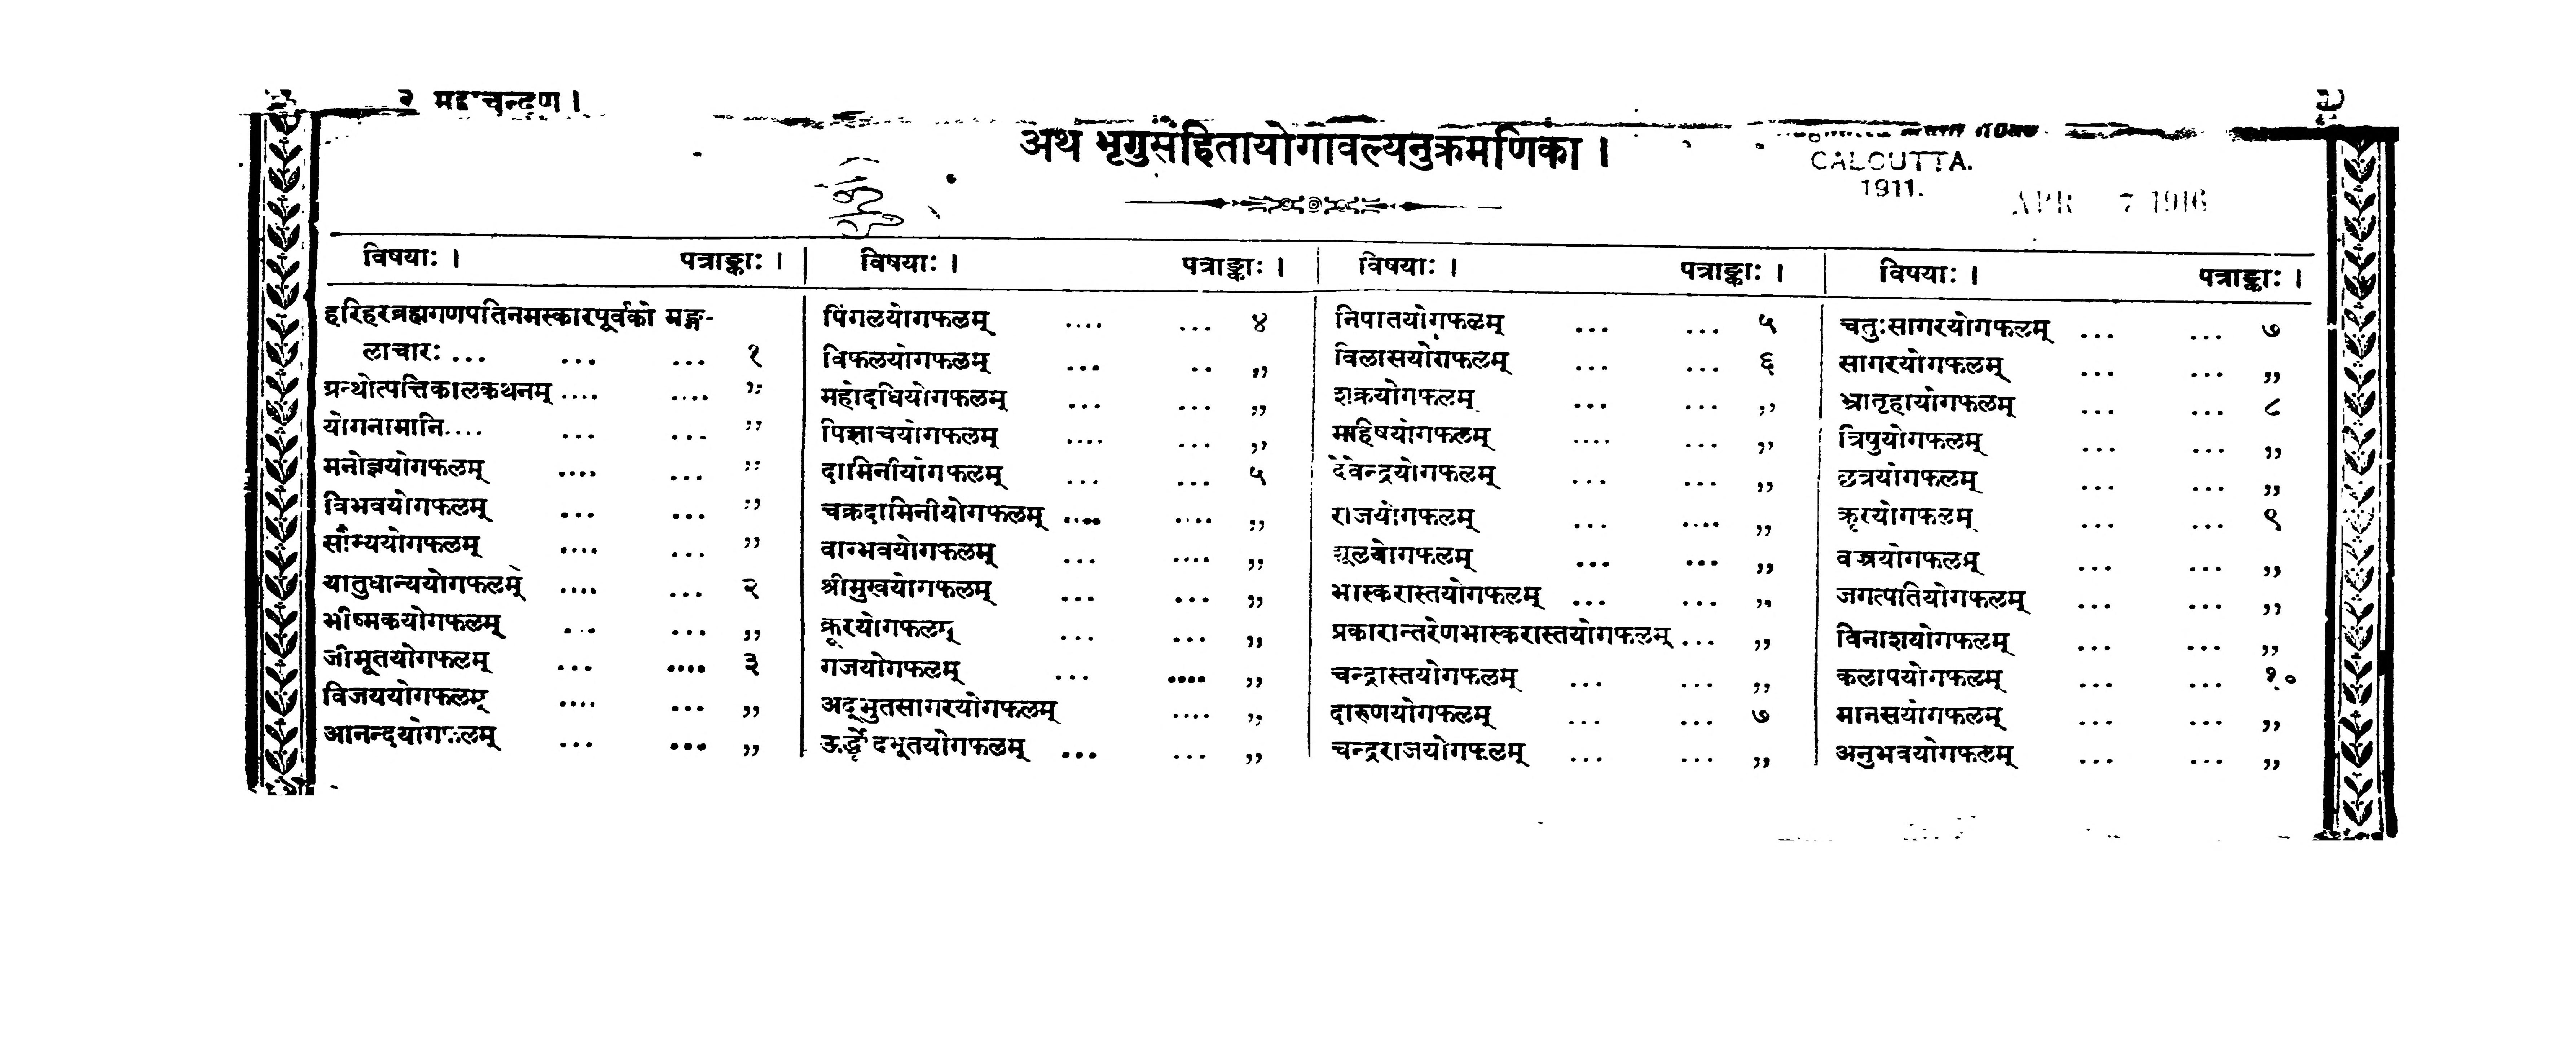 अथ भृगुसंहितायोगावल्यनुक्रमणिका ।
CALCUTTA.
1911.
APR 7 1916
विषयाः । पत्राङ्काः ।
हरिहरब्रह्मगणपतिनमस्कारपूर्वको मङ्ग-
लाचारः ... ... ... १
ग्रन्थोत्पत्तिकालकथनम् .... .... ,,
योगनामानि.... ... ... ,,
मनोज्ञयोगफलम् .... ... ,,
विभवयोगफलम् ... ... ,,
सौम्ययोगफलम् .... ... ,,
यातुधान्ययोगफलम् .... ... २
भीष्मकयोगफलम् ... ... ,,
जीमूतयोगफलम् ... .... ३
विजययोगफलम् .... ... ,,
आनन्दयोगफलम् ... ... ,,
विषयाः । पत्राङ्काः ।
पिंगलयोगफलम् .... ... ४
विफलयोगफलम् ... .. ,,
महोदधियोगफलम् ... ... ,,
पिशाचयोगफलम् .... ... ,,
दामिनीयोगफलम् ... ... ५
चक्रदामिनीयोगफलम् .... .... ,,
वाग्भवयोगफलम् ... .... ,,
श्रीमुखयोगफलम् ... ... ,,
क्रूरयोगफलम् ... ... ,,
गजयोगफलम् ... .... ,,
अद्भुतसागरयोगफलम् .... ,,
ऊर्द्ध्वोद्भूतयोगफलम् ... ... ,,
विषयाः । पत्राङ्काः ।
निपातयोगफलम् ... ... ५
विलासयोगफलम् ... ... ६
शक्रयोगफलम् ... ... ,,
माहिषयोगफलम् .... ... ,,
देवेन्द्रयोगफलम् ... ... ,,
राजयोगफलम् ... .... ,,
शूलयोगफलम् ... ... ,,
भास्करास्तयोगफलम् ... ... ,,
प्रकारान्तरेणभास्करास्तयोगफलम् ... ,,
चन्द्रास्तयोगफलम् ... ... ,,
दारुणयोगफलम् ... ... ७
चन्द्रराजयोगफलम् ... ... ,,
विषयाः । पत्राङ्काः ।
चतुःसागरयोगफलम् ... ... ७
सागरयोगफलम् ... ... ,,
भ्रातृहायोगफलम् ... ... ८
त्रिपुयोगफलम् ... ... ,,
छत्रयोगफलम् ... ... ,,
क्रूरयोगफलम् ... ... ९
वज्रयोगफलम् ... ... ,,
जगत्पतियोगफलम् ... ... ,,
विनाशयोगफलम् ... ... ,,
कलापयोगफलम् ... ... १०
मानसयोगफलम् ... ... ,,
अनुभवयोगफलम् ... ... ,,